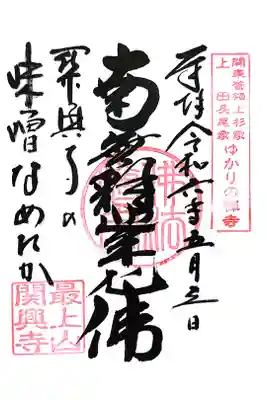 関東管領上杉家
上田長尾家ゆかりの禅寺
奉拝令和六年五月三日
南無釈迦牟尼佛
関興寺の
味噌なめたか
最上山
関興寺